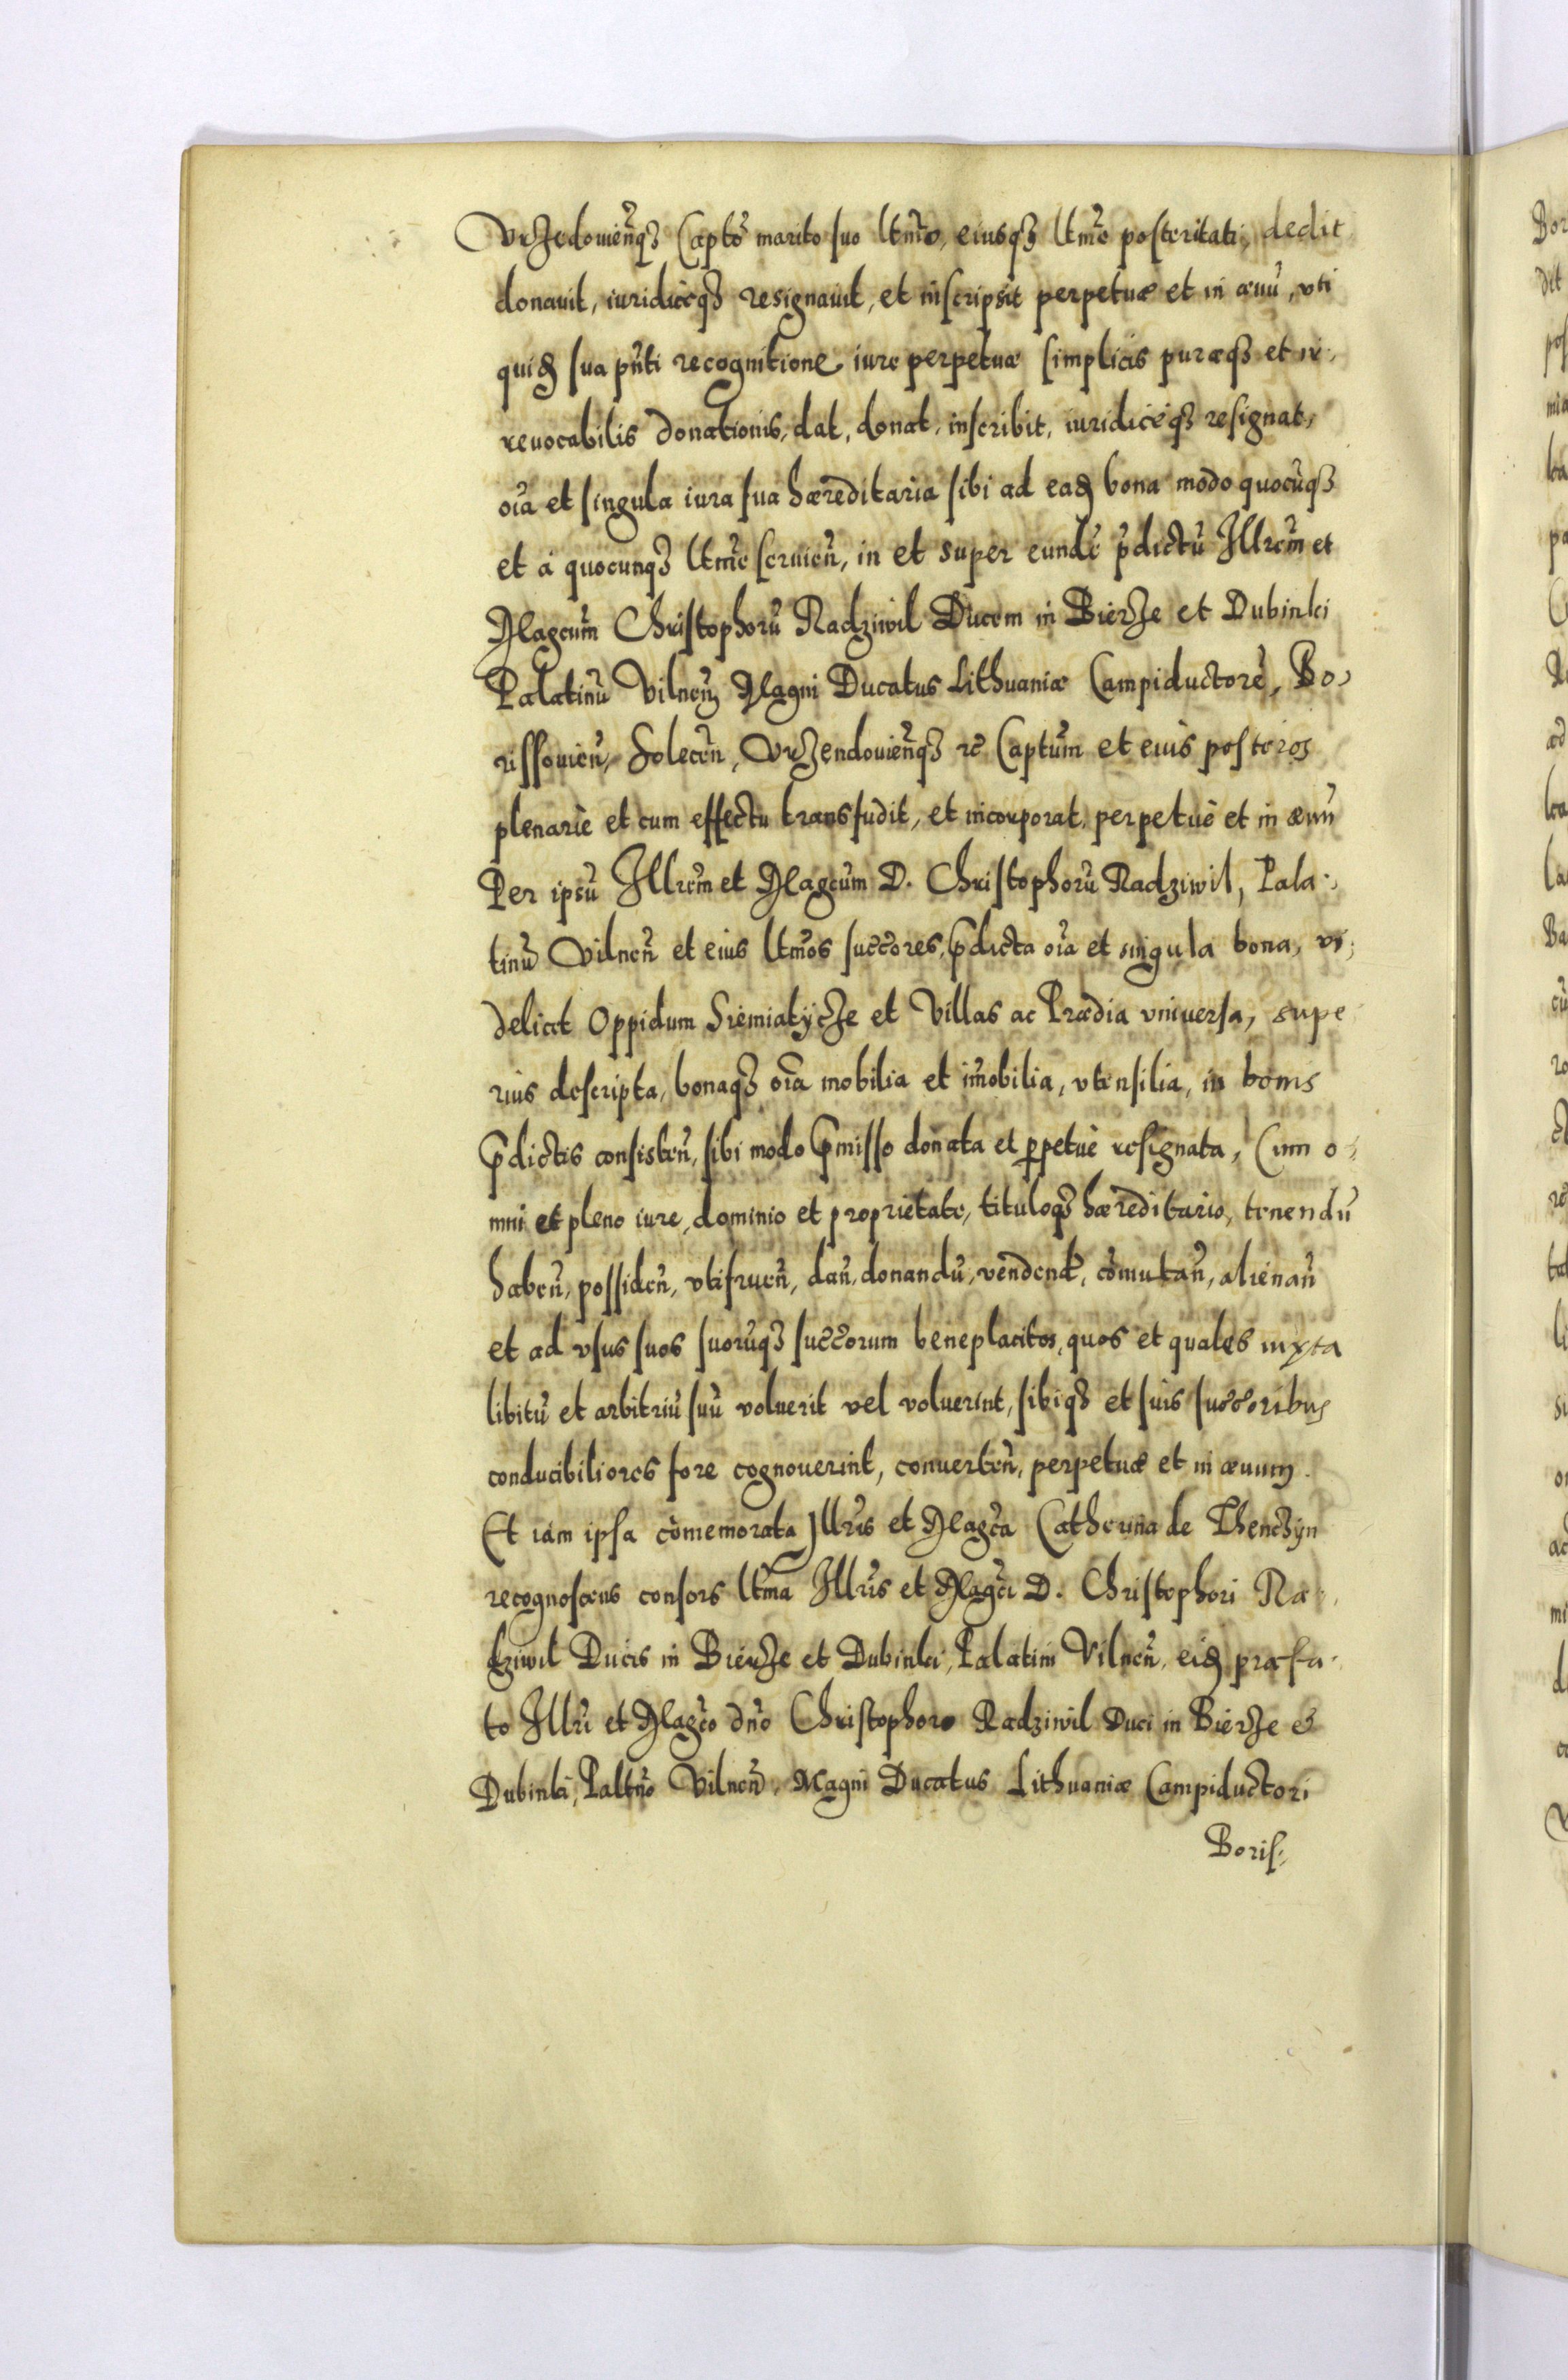 VrZedouieñqꝫ Capto᷑ marito suo ltm̃o, eiusqꝫ ltm̃e posteritati, dedit
donauit, iuridicèqꝫ resignauit, et inscripsit perpetuæ et in æuũ, vti
quidẽ sua pñti recognitione iure perpetuæ simplicis puræqꝫ et ir⸗
reuocabilis donationis, dat, donat, inscribit, iuridicèqꝫ resignat,
oĩa et singula iura sua hæreditaria sibi ad eadẽ bona modo quocũqꝫ
et à quocunqꝫ ltm̃e seruieñ, in et super eundẽ p̃dictũ Illrem̃ et
Magcum̃ Christophorũ Radziwil Ducem in BierZe et Dubinki
Palatinũ Vilneñ Magni Ducatus Lithuaniæ Campiductorẽ, Bo⸗
rissouieñ, Soleceñ, VrZendouieñqꝫ rẽ Captum̃ et eius posteros
plenariè et cum effectu transfudit, et incorporat, perpetuè et in æuũ
Per ipsũ Illrem̃ et Magcum̃ D. Christophorũ Radziwil, Pala⸗
tinũ Vilneñ et eius ltm̃os succ̃ores, p̃dicta oĩa et singula bona, vi⸗
delicet Oppidum SiemiatycZe et Villas ac Prædia vniuersa, supe
rius descripta, bonaqꝫ oĩa mobilia et im̃obilia, vtensilia, in bonis
p̃dictis consisteñ, sibi modo p̃misso donata et ꝑpetuè resignata, Cum o⸗
mni et pleno iure, dominio et proprietate, tituloqꝫ hæreditario, tenendũ
habeñ, possideñ, vtifrueñ, dañ, donandũ, vendend, com̃utañ, alienañ
et ad vsus suos suorũqꝫ succ̃orum beneplacitos, quos et quales iuxta
libitũ et arbitriũ suũ voluerit vel voluerint, sibiqꝫ et suis succ̃oribus
conducibiliores fore cognouerint, conuerteñ, perpetuæ et in æuum.
Et iam ipsa com̃emorata Illris̃ et Magcã Catherina de Thenczyn
recognoscens consors ltm̃a Illris̃ et Magcĩ D. Christophori Ra⸗
dziwil Ducis in BierZe et Dubinki, Palatini Vilneñ, eidẽ præfa⸗
to Illrĩ et Magcõ dño Christophoro Radziwil Duci in BierZe &
Dubinki, Paltño Vilneñ, Magni Ducatus Lithuaniæ Campiductori
Boris⸗